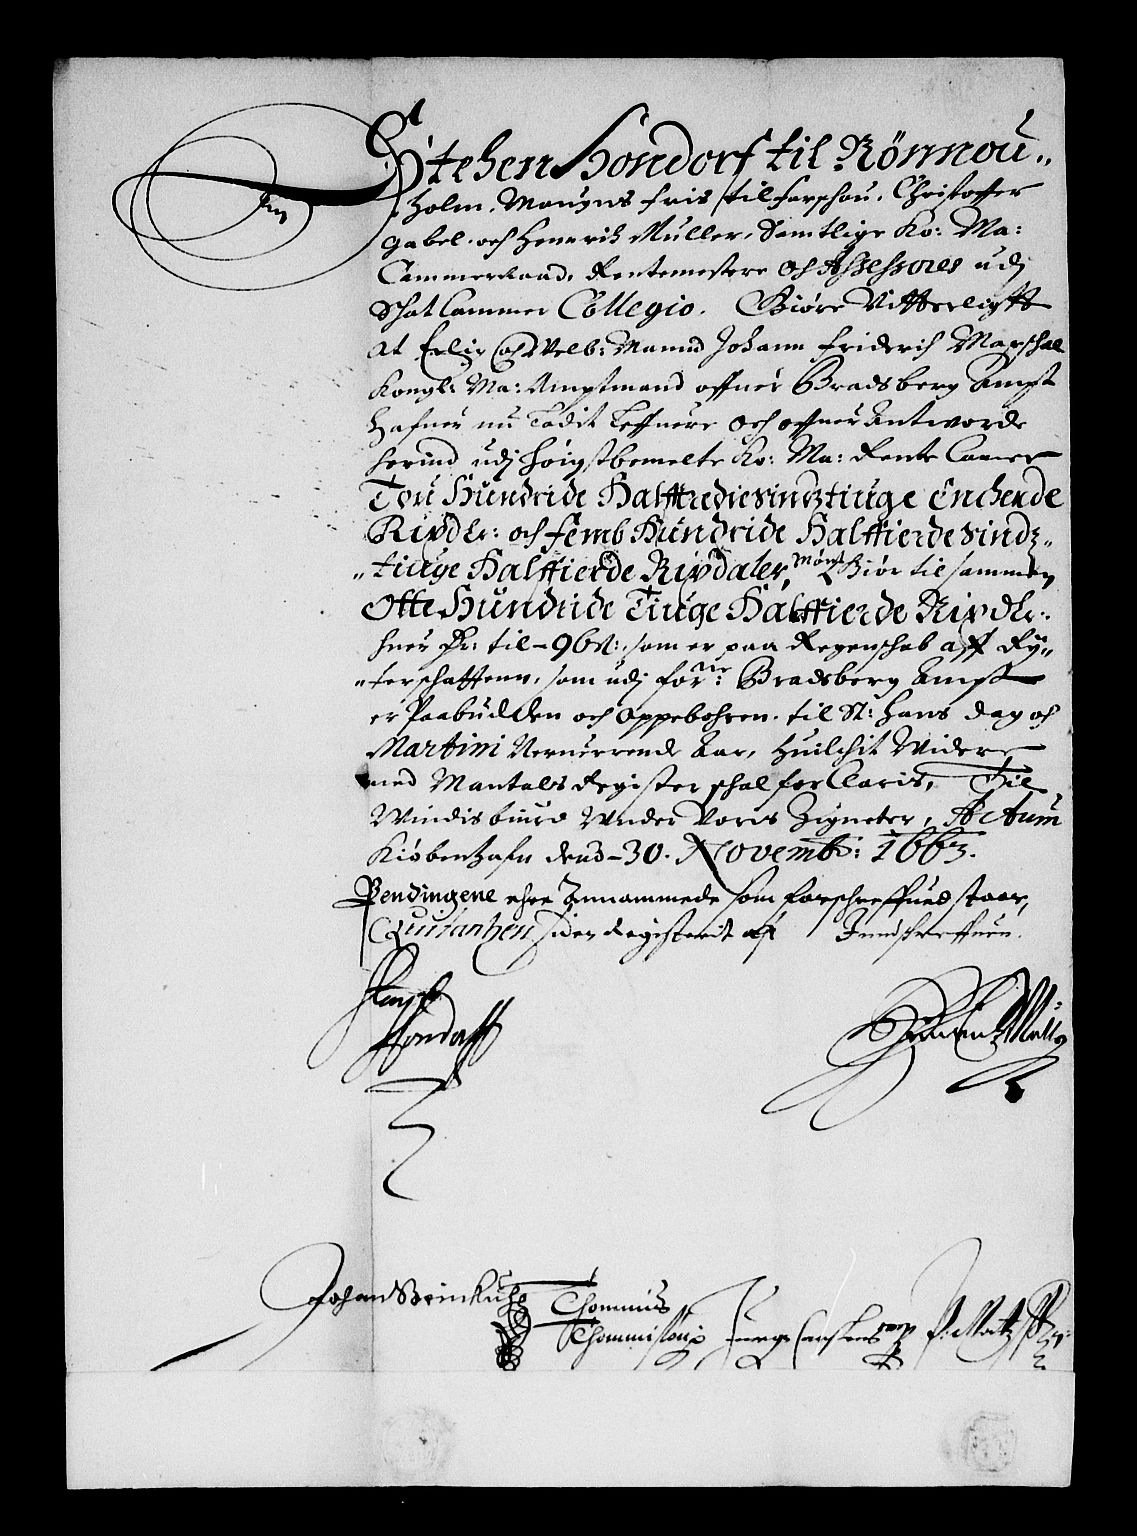 Stehen Hondorf til Rönnou„
holm, Mougns Friis til Farschou, Christoffer
Gabel, och Hennrich Müller, Samtlige Ko: Ma:
Cammerraad, Rentemestere Och Assessores udj
Schat Cammer Collegio. Giöre Vitterligtt
At Erlig Och Welb: Mannd Johann Friderich Marschal
Kongl: Ma: Amptmand offuer Bradsberg Ampt
Hafuer nu Ladit Leffuere Och offuer Antworde
herind udj höigstbemelte Ko: Ma: Rente Camer
Tou Hundride Halfftrediesindztiuge Enchende
Rixdlr: och femb Hundride Halffierdesindz„
„tiuge Halffierde Rixdaler, Mønt Giør tilsammen
Otte Hundride Tiuge Halffierde Rixdlr:
huer Dr: til – 96 s: som er paa Regenschab aff Ry„
„terschattenn, som udj for:ne Bradsberg Ampt
er Paabudden och Oppebohren til St: Hans dag och
Martini Neruerrende Aar, Huilchit Widere
med Mantals Register schal forClaris, Til
Windisbiurd Under Voris Zigneter, Actum
Kiöbenhafn dend – 30. Novemb: 1663.
Pendingene ehre Annammede som forschreffued staar,
Quitantzen siden Registerit aff Inndschreffuen.
Steen
Hondorff
Henrich Müller
Johan Steinkuhl
Thommis
Thommissøn Jurge Carstens P: Matz